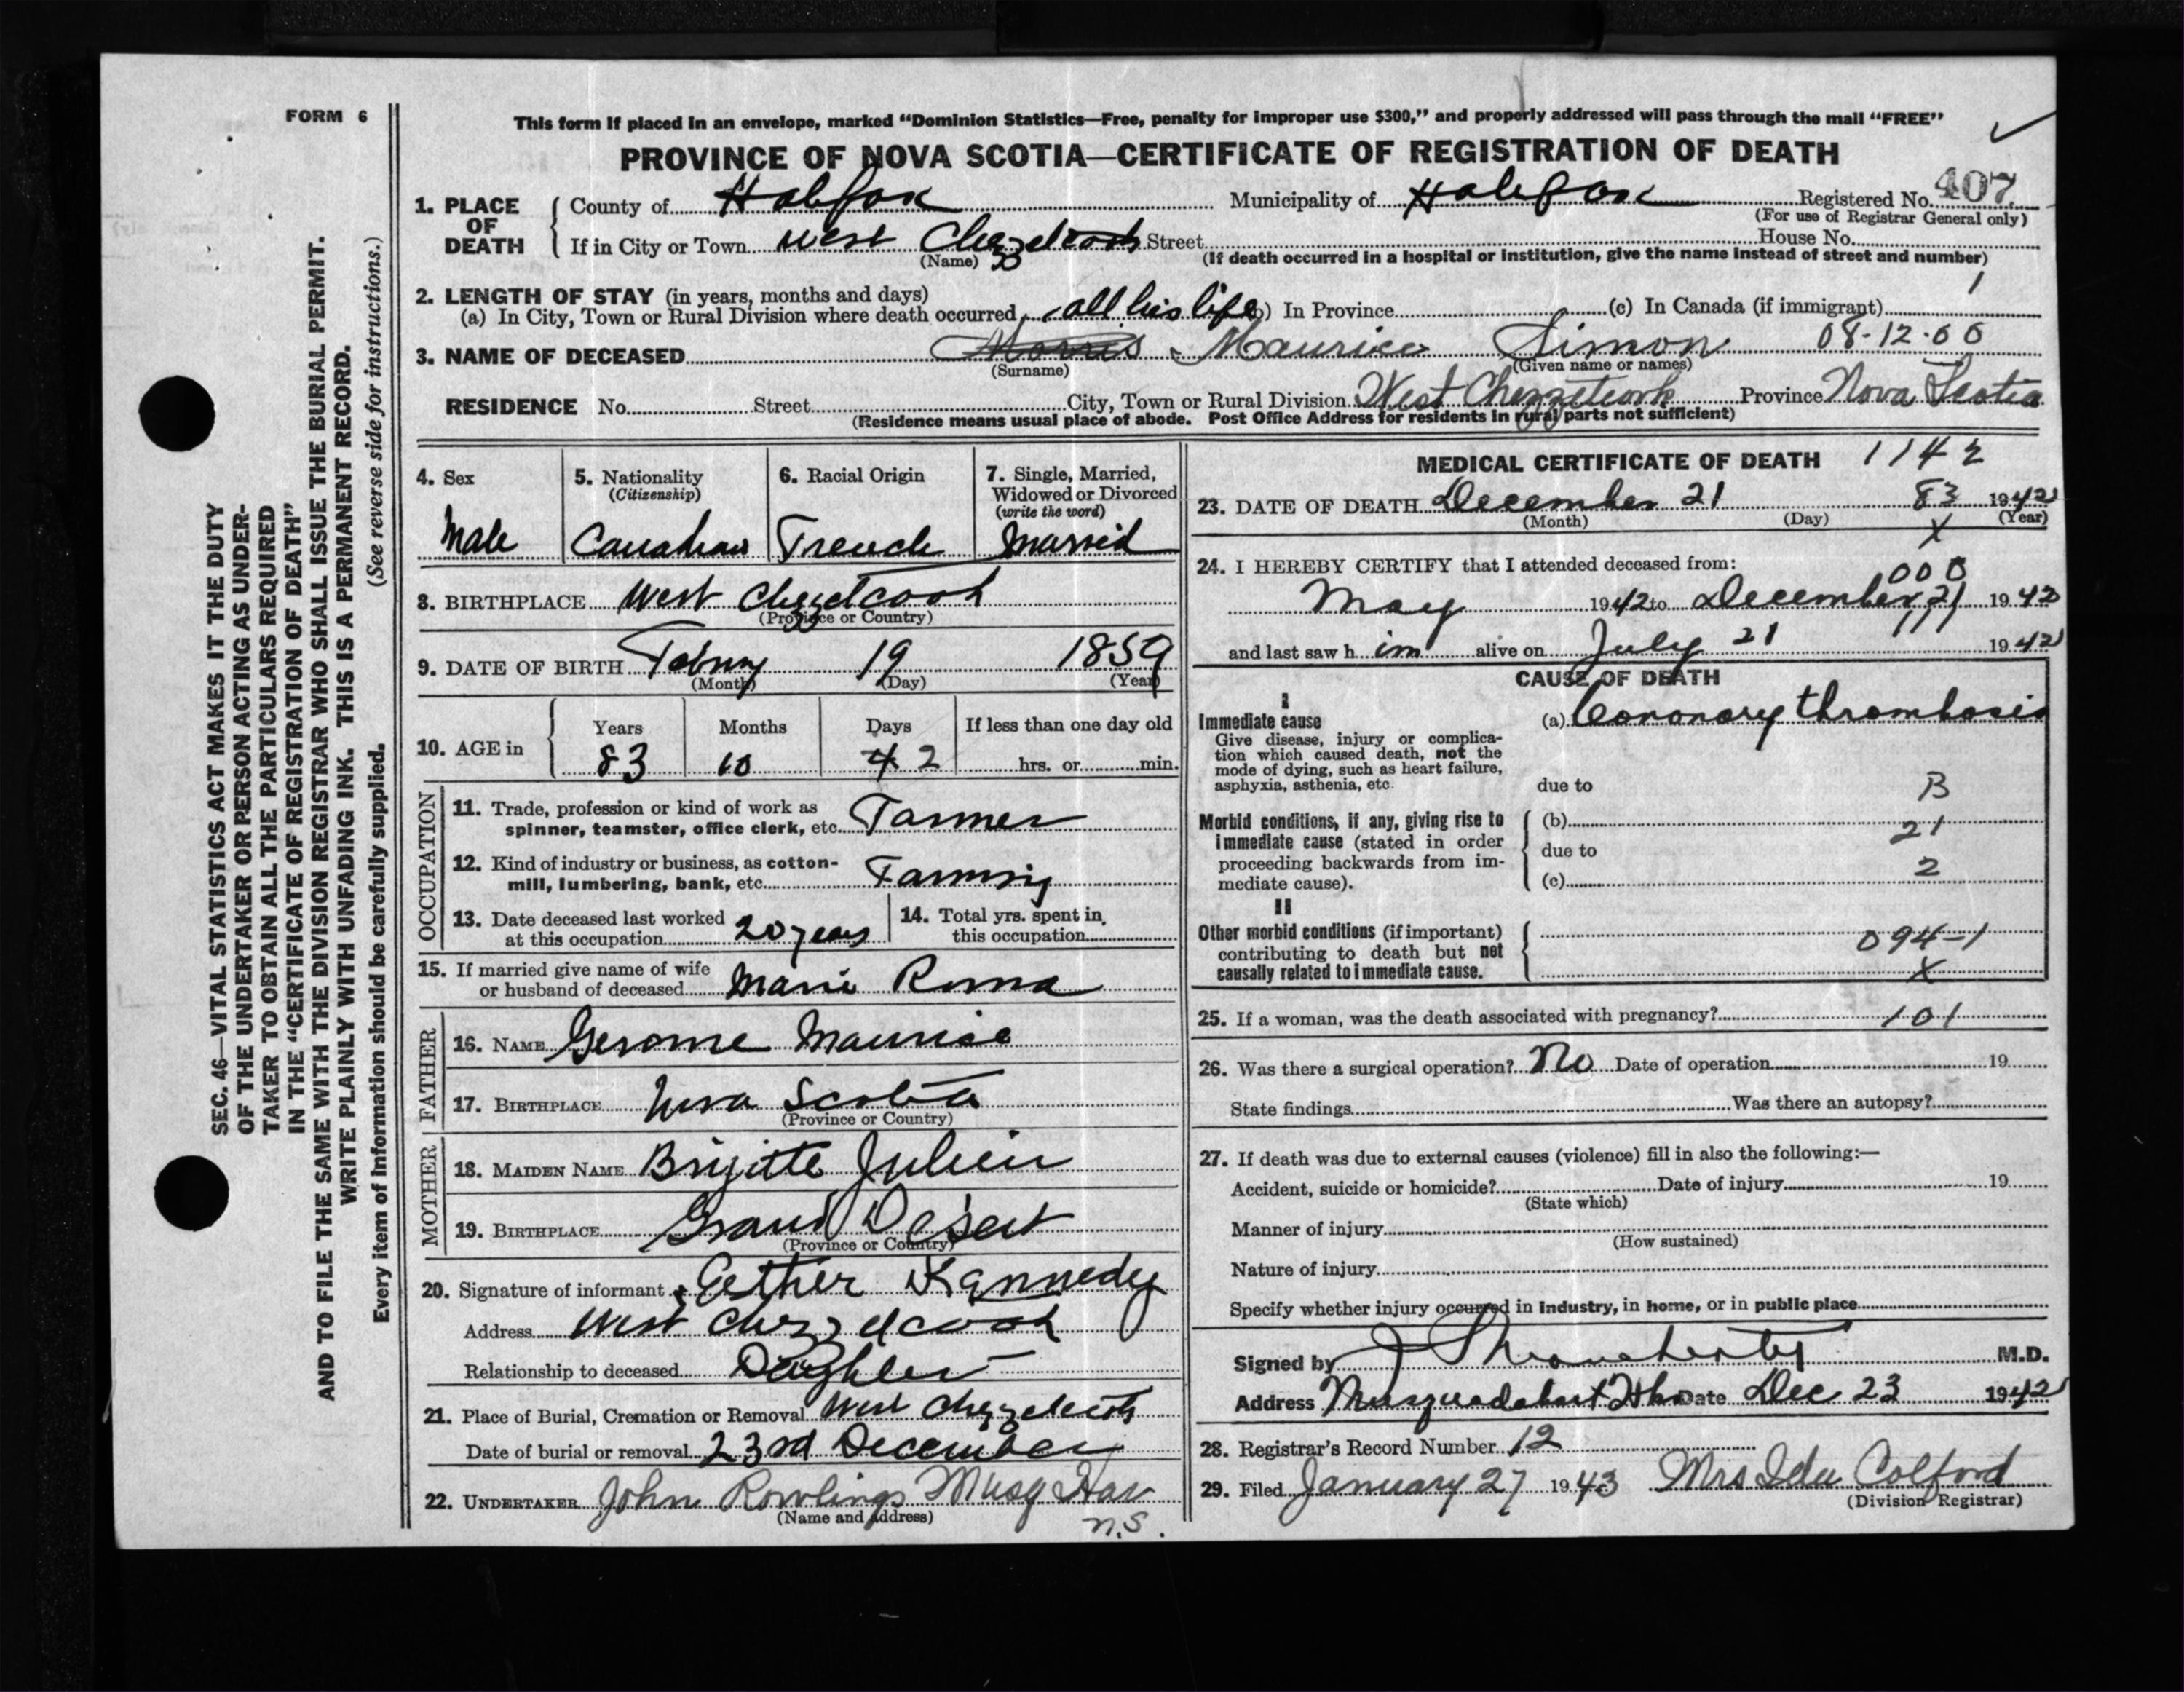 FORM 6
This form if placed in an envelope, marked “Dominion Statistics—Free, penalty for improper use $300,” and properly addressed will pass through the mail “FREE”
PROVINCE OF NOVA SCOTIA—CERTIFICATE OF REGISTRATION OF DEATH
1. PLACE OF DEATH { County of Halifax Municipality of Halifax Registered No. 407
(For use of Registrar General only)
If in City or Town West Chezzetcook Street House No.
(Name) (If death occurred in a hospital or institution, give the name instead of street and number)
2. LENGTH OF STAY (in years, months and days) 1
(a) In City, Town or Rural Division where death occurred all his life ) In Province (c) In Canada (if immigrant)
3. NAME OF DECEASED Morris Maurice Simon 08-12-00
(Surname) (Given name or names)
RESIDENCE No. Street City, Town or Rural Division West Chezzetcook Province Nova Scotia
(Residence means usual place of abode. Post Office Address for residents in rural parts not sufficient)
4. Sex Male
5. Nationality (Citizenship) Canadian
6. Racial Origin French
7. Single, Married, Widowed or Divorced (write the word) Married
8. BIRTHPLACE West Chezzetcook
(Province or Country)
9. DATE OF BIRTH 19 1859
(Month) (Day) (Year)
10. AGE in { Years Months Days If less than one day old
83 10 4 2 hrs. or min.
OCCUPATION
11. Trade, profession or kind of work as
spinner, teamster, office clerk, etc. Farmer
12. Kind of industry or business, as cotton-
mill, lumbering, bank, etc. Farming
13. Date deceased last worked
at this occupation 20 years
14. Total yrs. spent in
this occupation
15. If married give name of wife
or husband of deceased Marie Roma
FATHER
16. NAME Gerome Maurise
17. BIRTHPLACE Nova Scotia
(Province or Country)
MOTHER
18. MAIDEN NAME Brigitte Julien
19. BIRTHPLACE Grand Desert
(Province or Country)
20. Signature of informant Esther Kennedy
Address West Chezzetcook
Relationship to deceased Daughter
21. Place of Burial, Cremation or Removal West Chezzetcook
Date of burial or removal 23rd December
22. UNDERTAKER John Rowlings Musq Har
(Name and Address) N.S.
MEDICAL CERTIFICATE OF DEATH 1142
23. DATE OF DEATH December 21 83 1942
(Month) (Day) (Year)
X
24. I HEREBY CERTIFY that I attended deceased from:
000
May 1942 to December 21 1942
111
and last saw him alive on July 21 1942
CAUSE OF DEATH
I
Immediate cause (a) Coronary thrombosis
Give disease, injury or complica-
tion which caused death, not the
mode of dying, such as heart failure,
asphyxia, asthenia, etc. due to B
Morbid conditions, if any, giving rise to (b) 21
immediate cause (stated in order due to
proceeding backwards from im- 2
mediate cause). (c)
II
Other morbid conditions (if important) 094-1
contributing to death but not
causally related to immediate cause. X
25. If a woman, was the death associated with pregnancy? 101
26. Was there a surgical operation? No Date of operation 19
State findings Was there an autopsy?
27. If death was due to external causes (violence) fill in also the following:—
Accident, suicide or homicide? Date of injury 19
(State which)
Manner of injury
(How sustained)
Nature of injury
Specify whether injury occurred in industry, in home, or in public place
Signed by M.D.
Address Musquodoboit Hbr Date Dec 23 1942
28. Registrar's Record Number 12
29. Filed January 27 1943 Mrs Ida Colford
(Division Registrar)
SEC. 46—VITAL STATISTICS ACT MAKES IT THE DUTY
OF THE UNDERTAKER OR PERSON ACTING AS UNDER-
TAKER TO OBTAIN ALL THE PARTICULARS REQUIRED
IN THE “CERTIFICATE OF REGISTRATION OF DEATH”
AND TO FILE THE SAME WITH THE DIVISION REGISTRAR WHO SHALL ISSUE THE BURIAL PERMIT.
WRITE PLAINLY WITH UNFADING INK. THIS IS A PERMANENT RECORD.
Every item of information should be carefully supplied. (See reverse side for instructions.)